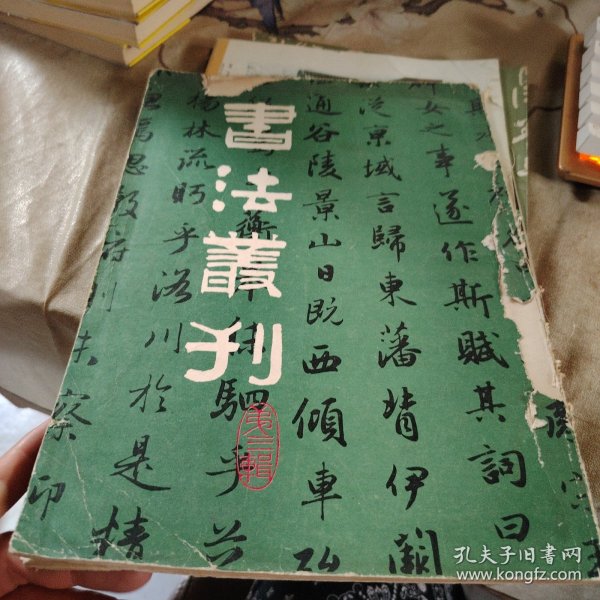 書法叢刊
第三輯
女之事遂作斯賦其詞曰
從京域言歸東藩背伊闕
通谷陵景山日既西傾車殆
蘅
秣駟乎芝
楊林流眄乎洛川於是精
焉思散俯則未察仰
孔夫子旧书网
www.kongfz.com